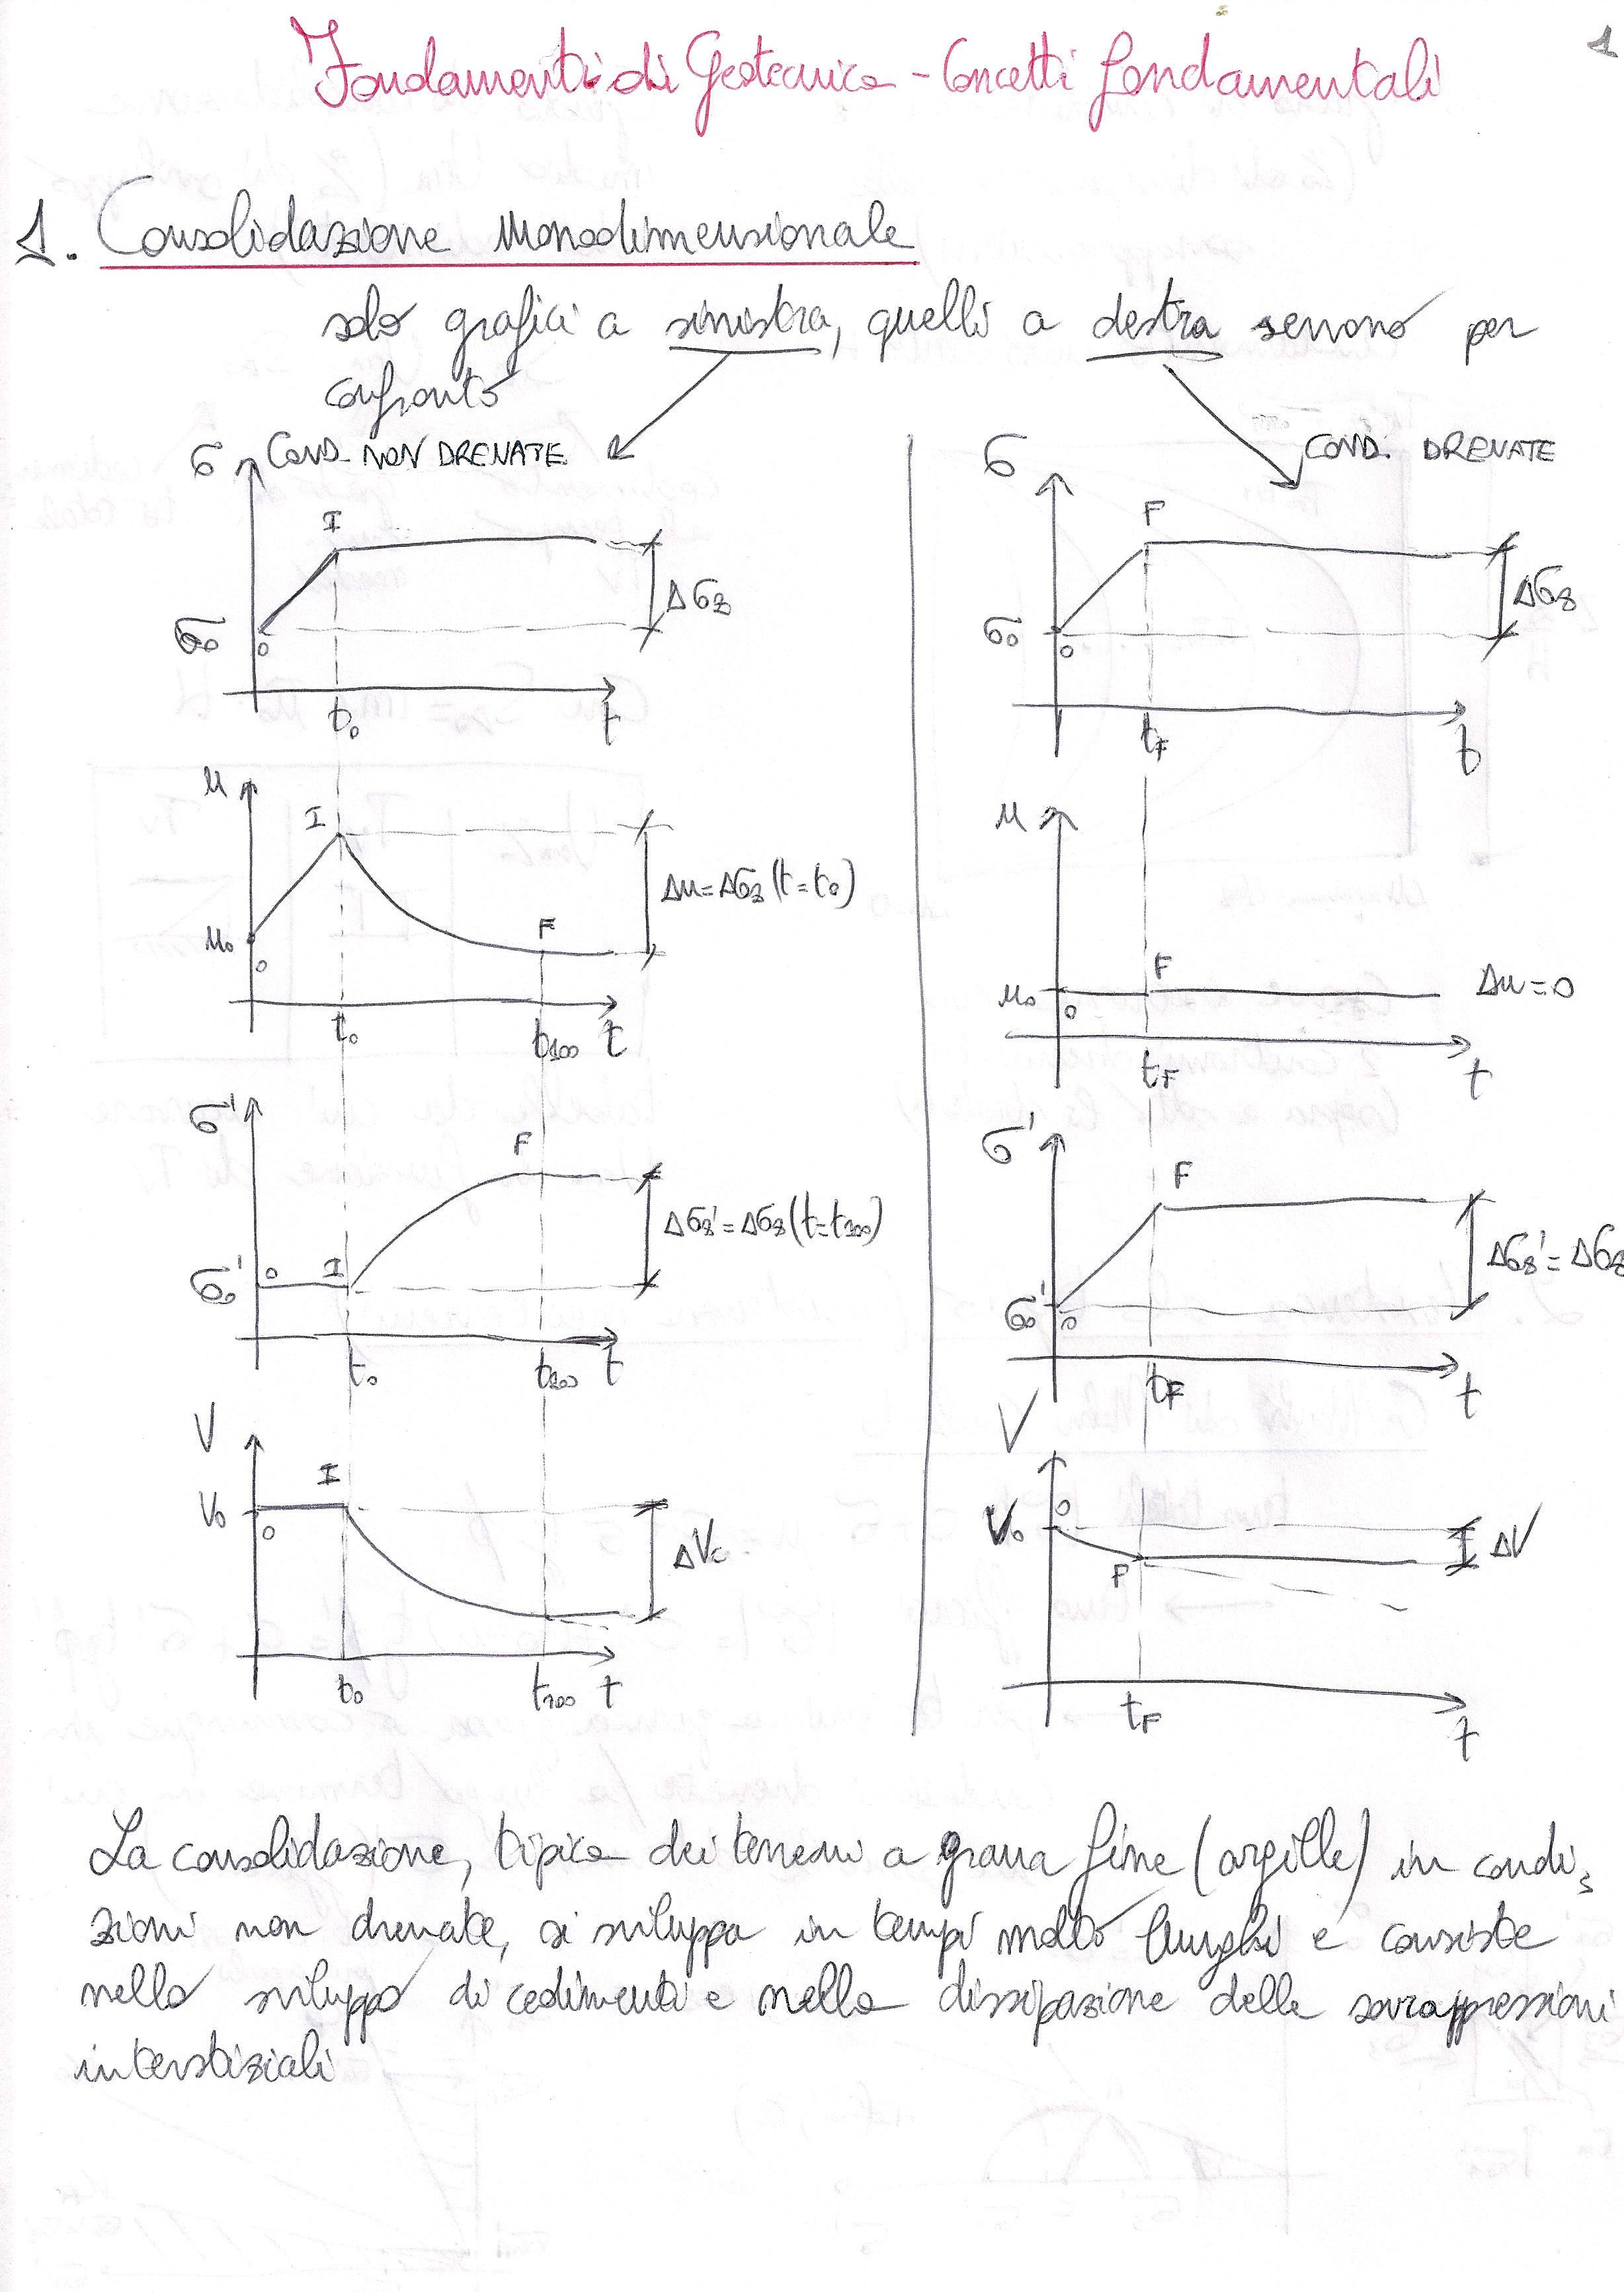 1
Fondamenti di Geotecnica - Concetti fondamentali
1. Consolidazione Monodimensionale
solo grafici a sinistra, quelli a destra servono per
confronto
COND. NON DRENATE
σ
I
Δσz
σ₀
0
t₀
t
u
I
Δu=Δσz (t=t₀)
u₀
0
F
t₀
t₁₀₀
t
σ'
F
Δσz'=Δσz (t=t₁₀₀)
σ₀'
0
I
t₀
t₁₀₀
t
V
I
V₀
0
ΔVc
t₀
t₁₀₀
t
COND. DRENATE
σ
F
Δσz
σ₀
0
tF
t
u
F
u₀
0
Δu=0
tF
t
σ'
F
Δσz'=Δσz
σ₀'
0
tF
t
V
0
V₀
F
ΔV
tF
t
La consolidazione, tipica dei terreni a grana fine (argille) in condi
zioni non drenate, si sviluppa in tempi molto lunghi e consiste
nello sviluppo di cedimenti e nella dissipazione delle sovrappressioni
interstiziali